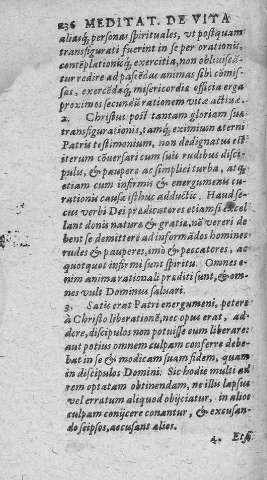 236 MEDITAT. DE VITA
aliasq́, personas spirituales, vt postquam
transfigurati fuerint in se per orationis,
contẽplationisq́, exercitia, non obliuiscã-
tur redire ad pascẽdas animas sibi cõmis-
sas, exercẽdaq́, misericordiæ officia erga
proximos secundũ rationem vitæ actiuæ.
2. Christus post tantam gloriam suæ
transfigurationis, tamq́, eximium æterni
Patris testimonium, non dedignatus est
iterum cõuersari cum suis rudibus disci-
pulis, & paupere ac simplici turba, atq́,
etiam cum infirmis & energumenis cu-
rationis causa isthuc adductis. Haud se-
cus verbi Dei prædicatores etiamsi excel
lant donis naturæ & gratiæ, nõ vereri de
bent se demittere ad informãdos homines
rudes & pauperes, imò & peccatores, ac
quotquot infirmi sunt spiritu. Omnes e-
nim anima rationali præditi sunt, & om-
nes vult Dominus saluari.
3. Satis erat Patri energumeni, petere
à Christo liberationẽ, nec opus erat, ad-
dere, discipulos non potuisse eum liberare:
aut potius omnem culpam conferre debe-
bat in se & modicam suam fidem, quam
in discipulos Domini: Sic hodie multi ad
rem optatam obtinendam, ne illis lapsus
vel erratum aliquod obijciatur, in alios
culpam conijcere conantur, & excusan-
do seipsos, accusant alios.
4. Etsi